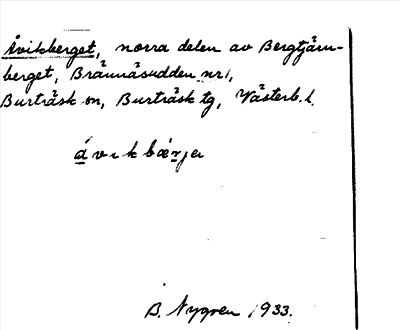 Åvikberget, norra delen av Bergtjärn-
berget, Brännäsudden nr 1,
Burträsk sn, Burträsk tg, Västerb. l.
B. Nygren 1933.